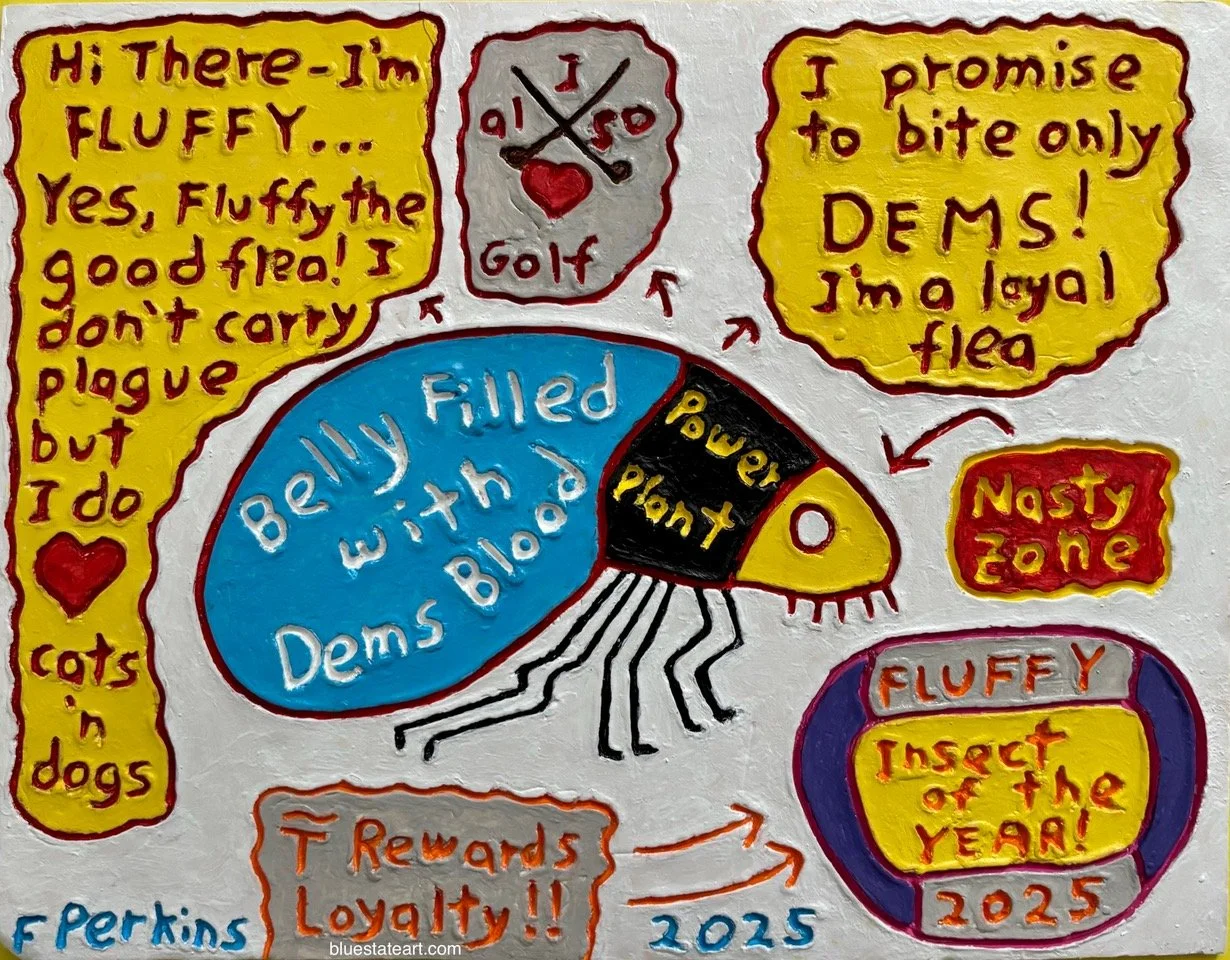 Hi There-I'm
FLUFFY...
Yes, Fluffy the
good flea! I
don't carry
plague
but
I do
cats
'n
dogs
I
also
Golf
I promise
to bite only
DEMS!
I'm a loyal
flea
Belly Filled
with
Dems Blood
Power
Plant
Nasty
Zone
FLUFFY
Insect
of the
YEAR!
2025
T̃ Rewards
Loyalty!!
F Perkins
2025
bluestateart.com